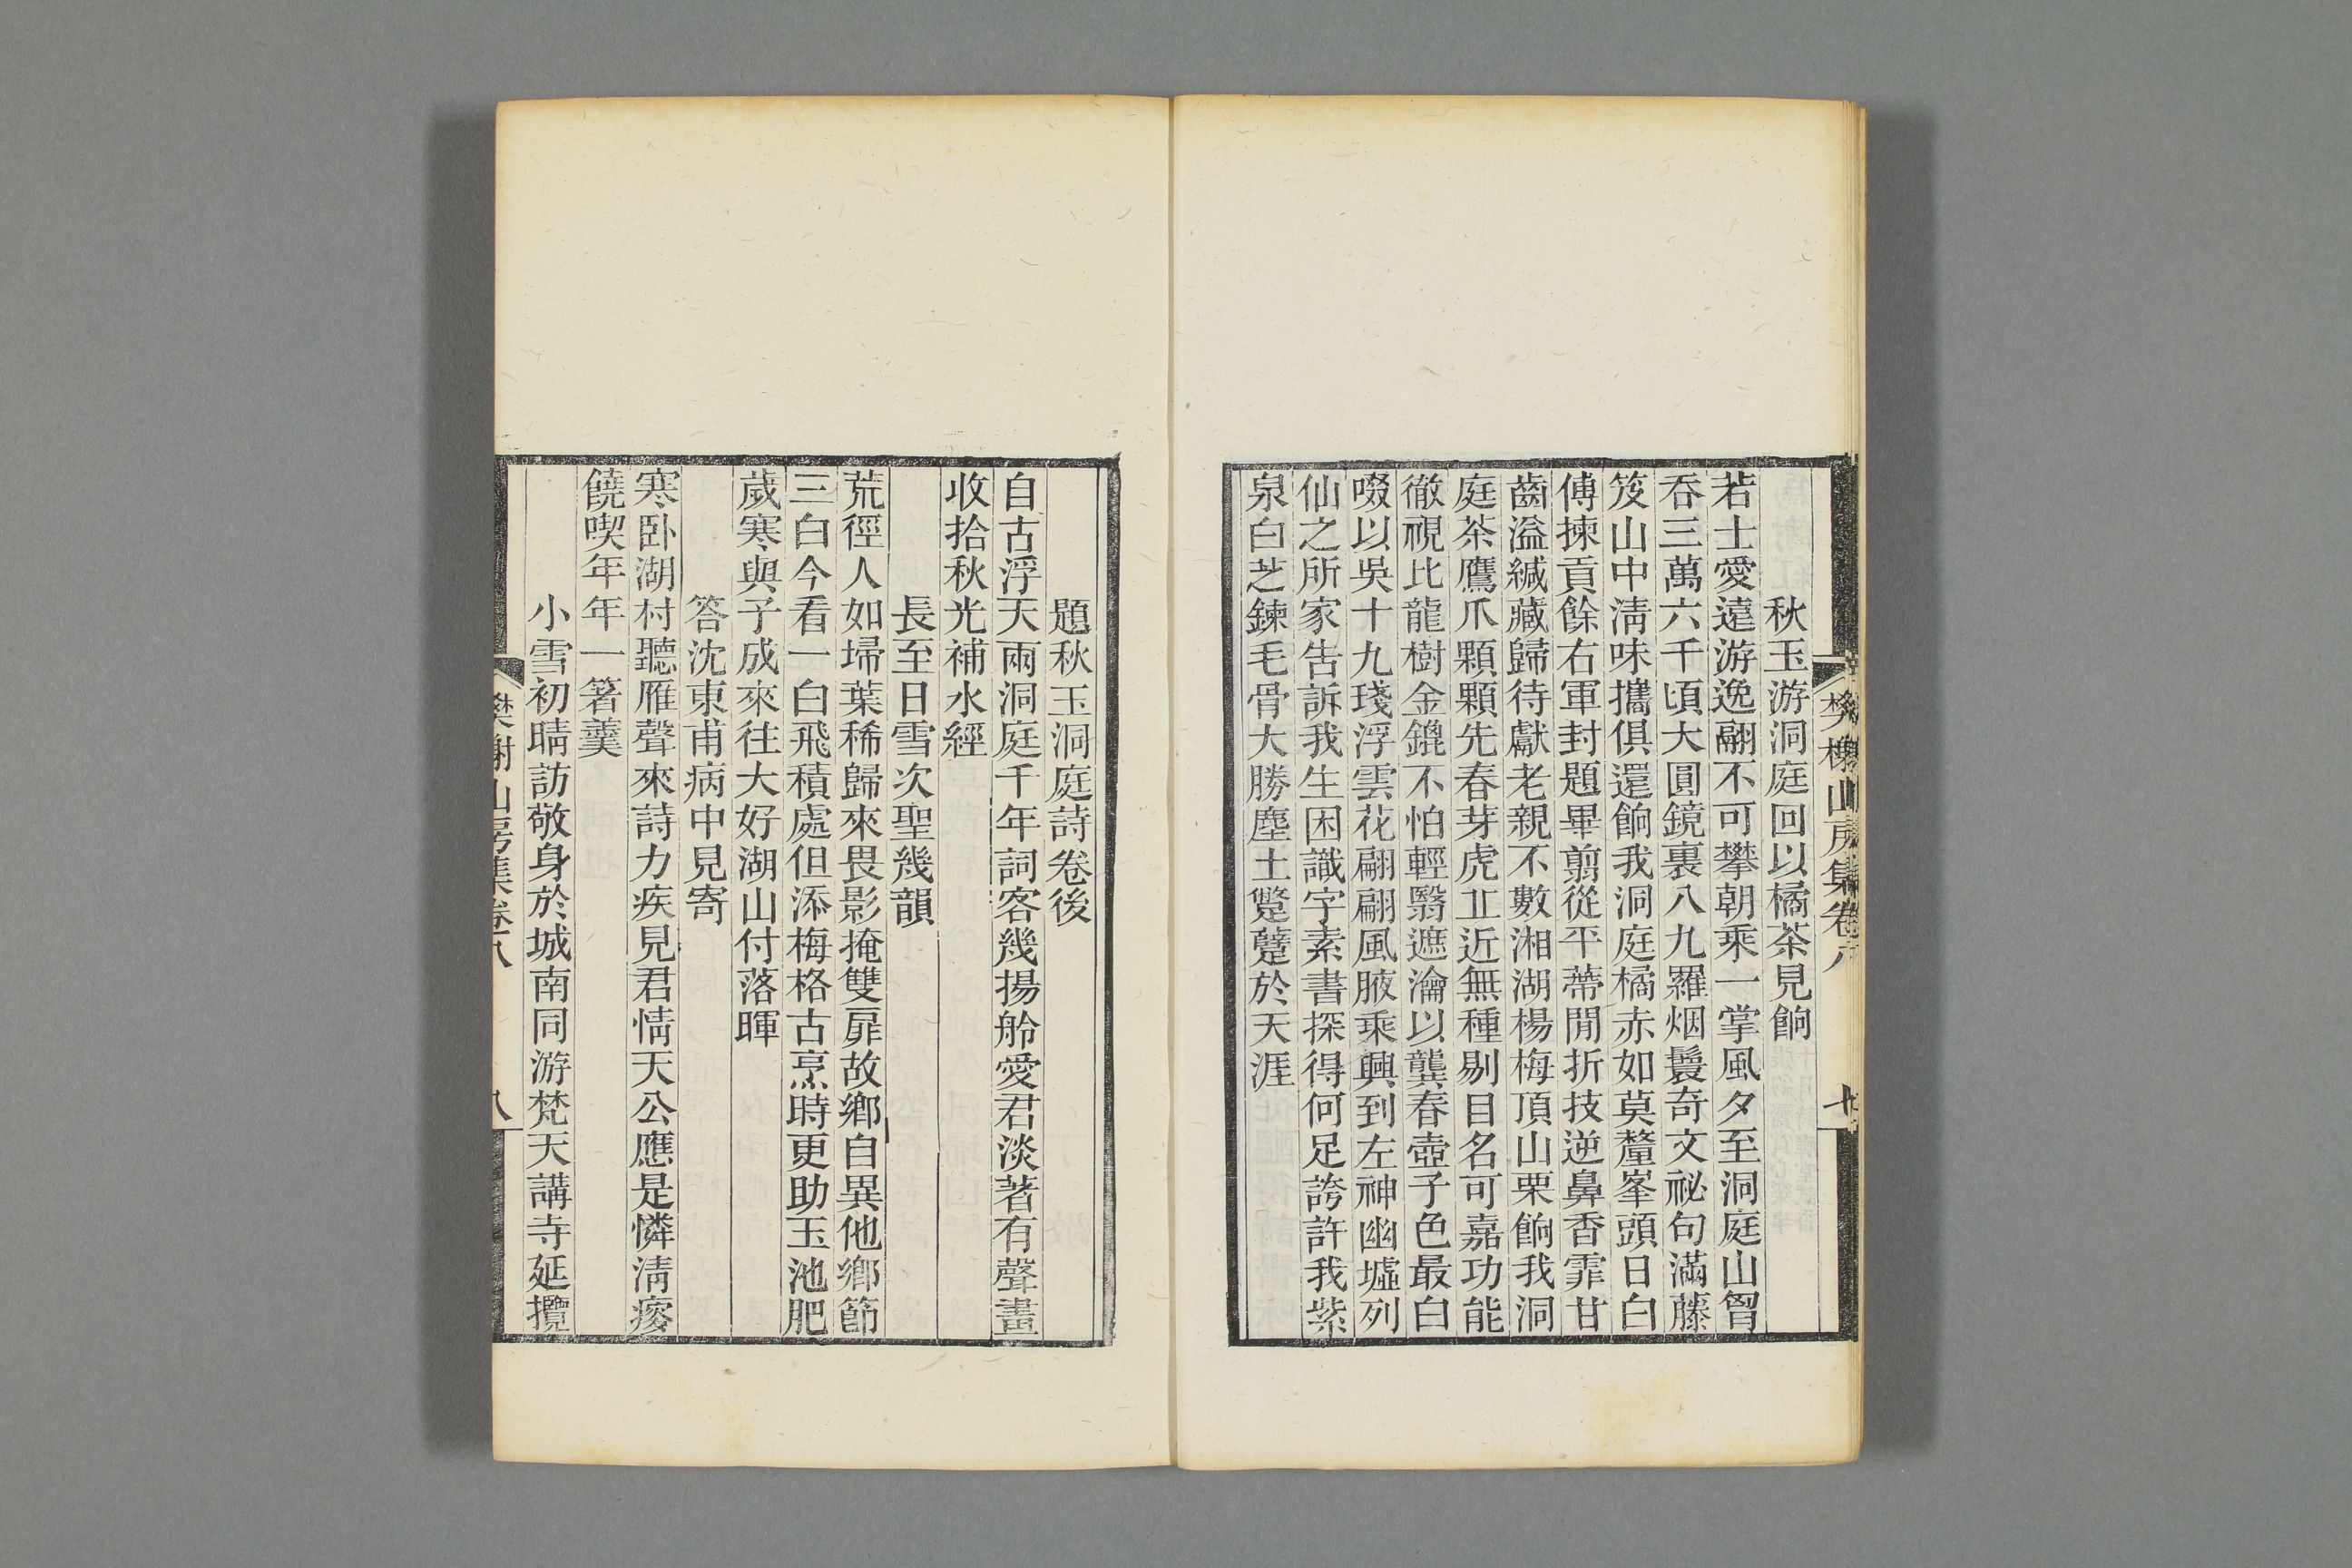 秋玉游洞庭回以橘茶見餉
若士愛遠游逸翮不可攀朝乘一掌風夕至洞庭山胷
吞三萬六千頃大圓鏡裏八九羅烟鬟奇文祕句滿藤
笈山中淸味攜俱還餉我洞庭橘赤如莫釐峯頭日白
傅揀貢餘右軍封題畢翦從平蒂閒折技逆鼻香霏甘
齒溢緘藏歸待獻老親不數湘湖楊梅頂山栗餉我洞
庭茶鷹爪顆顆先春芽虎丘近無種剔目名可嘉功能
徹視比龍樹金鎞不怕輕翳遮瀹以龔春壺子色最白
啜以吳十九琖浮雲花翩翩風腋乘興到左神幽墟列
仙之所家告訴我生困識字素書探得何足誇許我紫
泉白芝鍊毛骨大勝塵土蹩躠於天涯
樊榭山房集卷八
題秋玉洞庭詩卷後
自古浮天兩洞庭千年詞客幾揚舲愛君淡著有聲畫
收拾秋光補水經
長至日雪次聖幾韻
荒徑人如埽葉稀歸來畏影掩雙扉故鄕自異他鄕節
三白今看一白飛積處但添梅格古烹時更助玉池肥
歲寒與子成來往大好湖山付落暉
答沈東甫病中見寄
寒卧湖村聽雁聲來詩力疾見君情天公應是憐淸瘦
饒喫年年一箸羹
小雪初晴訪敬身於城南同游梵天講寺延攬
樊榭山房集卷八
八